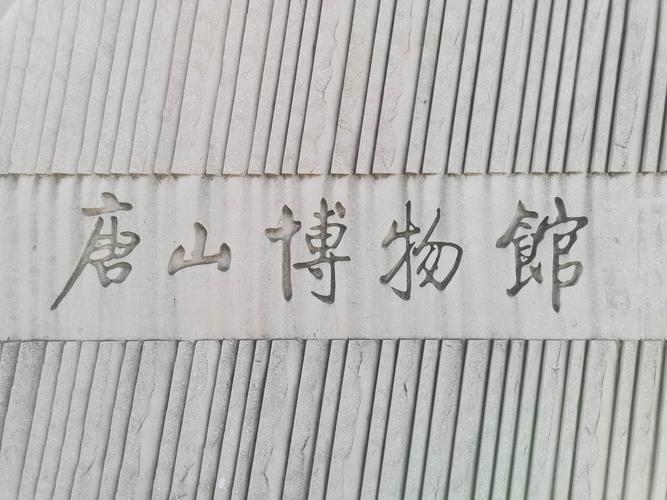 唐山博物館